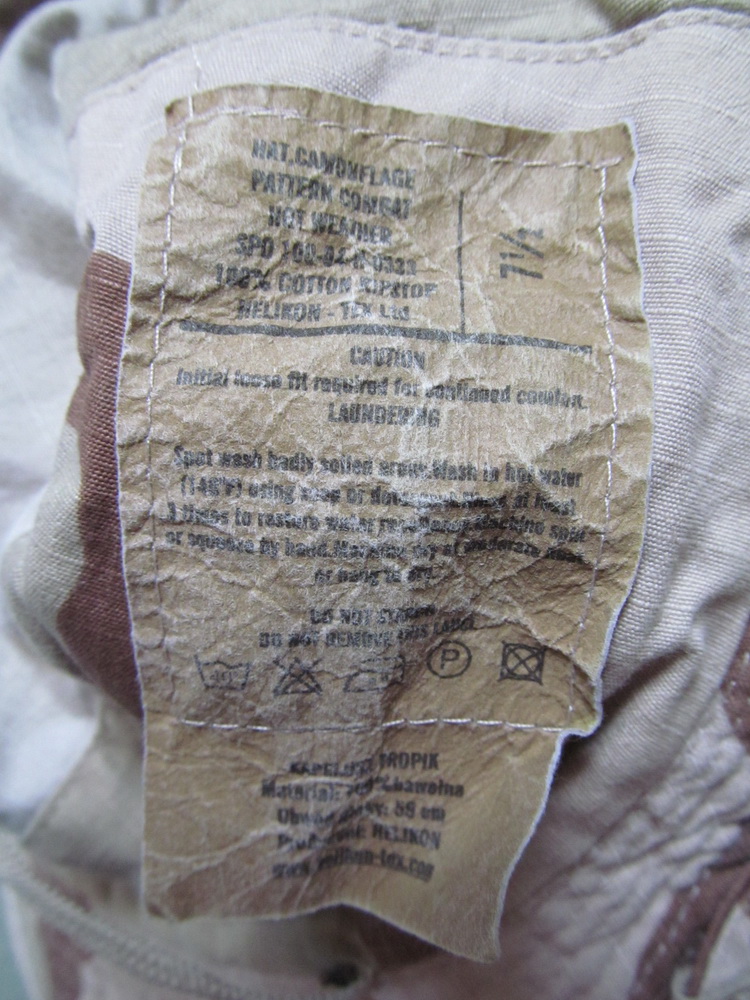 HAT.CAMOUFLAGE
PATTERN COMBAT
HOT WEADHER
SPO 100-
100% COTTON RIPSTOP
HELIKON - TEX Ltd
7 1/4
CAUTION
Initial loose fit required for continued comfort.
LAUNDERING
Spot wash badly soiled areas. Wash in hot water
(140°F) using soap or at least
3 times to restore water Machine spin
or squeeze by hand. dry at moderate
or hang to dry.
DO NOT STARCH
DO NOT REMOVE THIS LABEL
40
P
KAPELUSZ TROPIK
Materiał: bawełna
cm
HELIKON
www.helikon-tex.com